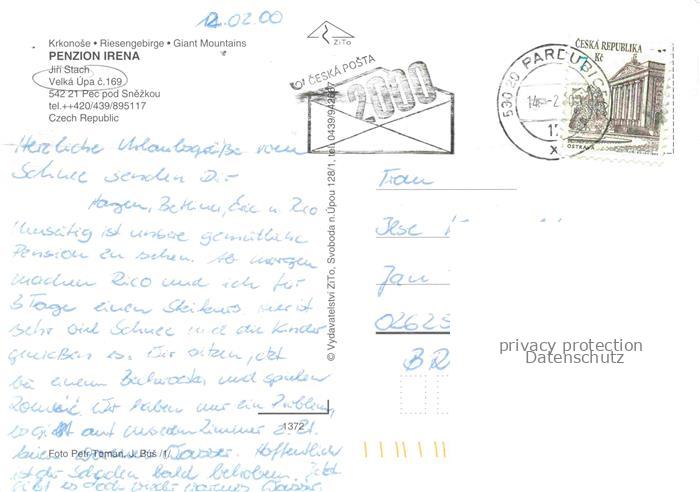 12.02.00
Krkonoše • Riesengebirge • Giant Mountains
PENZION IRENA
Jiří Stach
Velká Úpa č.169
542 21 Pec pod Sněžkou
tel.++420/439/895117
Czech Republic
ZiTo
ČESKÁ POŠTA
2000
530 20 PARDUBI
ČESKÁ REPUBLIKA
Kč
OSTRAVA
Herzliche Urlaubsgrüße vom
Schnee senden Dir
Hagen, Bettina, Eric u. Rico
ist unsere gemütliche
Pension zu sehen. Ab morgen
machen Rico und ich für
3 Tage einen Skikurs
sehr viel Schnee und die Kinder
genießen es. Wir sitzen
bei einem und spielen
Wir haben nur ein Problem,
es gibt auf unserem Zimmer z.Zt.
kein warmes Wasser. Hoffentlich
ist der Schaden bald behoben. Jetzt
gibt es doch wieder warmes Wasser.
© Vydavatelství ZiTo, Svoboda n.Úpou 128/1, tel. 0439/942
Frau
Ilse
Jan
02625
1372
Foto Petr Toman, J. Buš /1/
privacy protection
Datenschutz